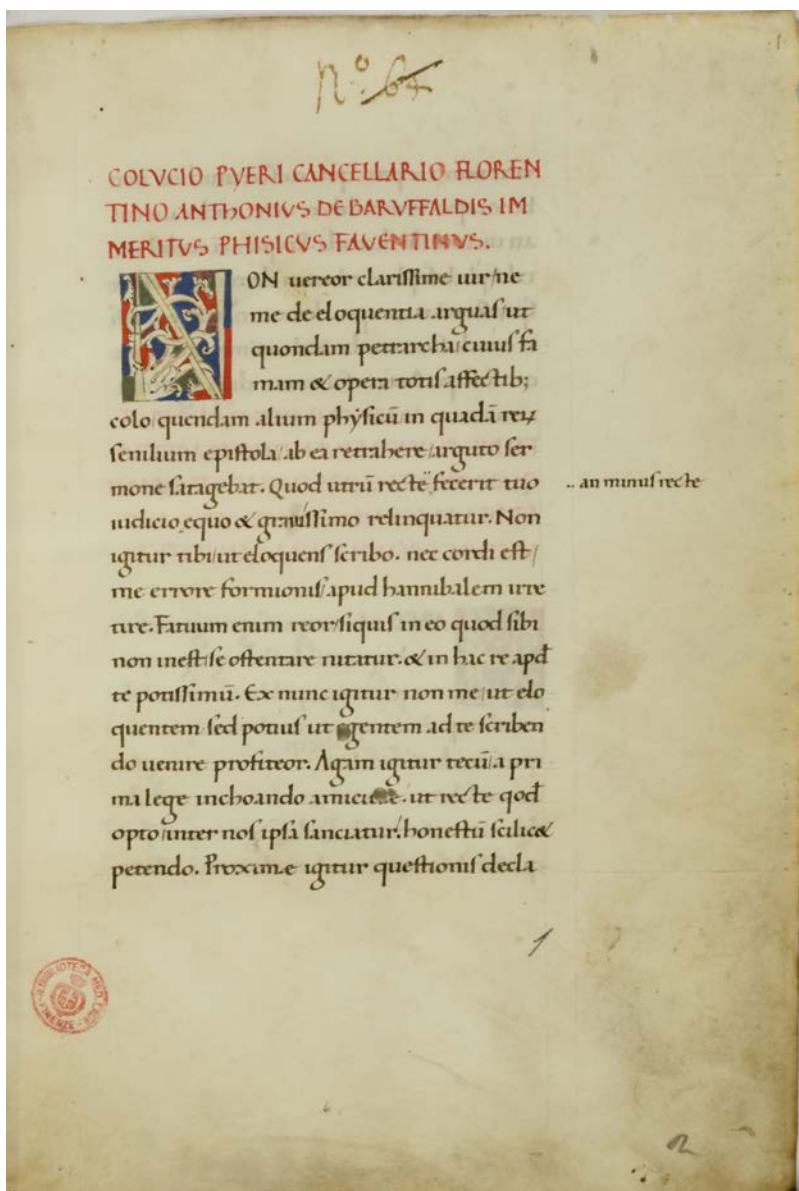 nº 64
COLVCIO PVERI CANCELLARIO FLOREN
TINO ANTHONIVS DE BARVFFALDIS IM
MERITVS PHISICVS FAVENTINVS.
NON uereor clarissime uir/ne
me de eloquentia arguas/ut
quondam petrarcha/cuius fa
mam & opera totis affectib;
colo/quendam alium phẏsicū in quadā reꝝ
senilium epistola/ab ea retrahere/arguto ser
mone satagebat. Quod utrū recte fecerit tuo
.. an minus recte
iudicio equo & grauissimo relinquatur. Non
igitur tibi/ut eloquens scribo. nec cordi est/
me errore formionis/apud hannibalem irre
tire. Fatuum enim reor/siquis in eo quod sibi
non inest/se ostentare nitatur. & in hac re apđ
te potissimū. Ex nunc igitur non me/ut elo
quentem sed potius ut egentem ad te scriben
do uenire profiteor. Agam igitur tecū/a pri
ma lege inchoando amicitie. ut recte qođ
opto/inter nos ipsa sanciatur. honestū scilic&
petendo. Proxime igitur questionis decla
1
BIBLIOTECA MED. LAUR.
FIRENZE
2